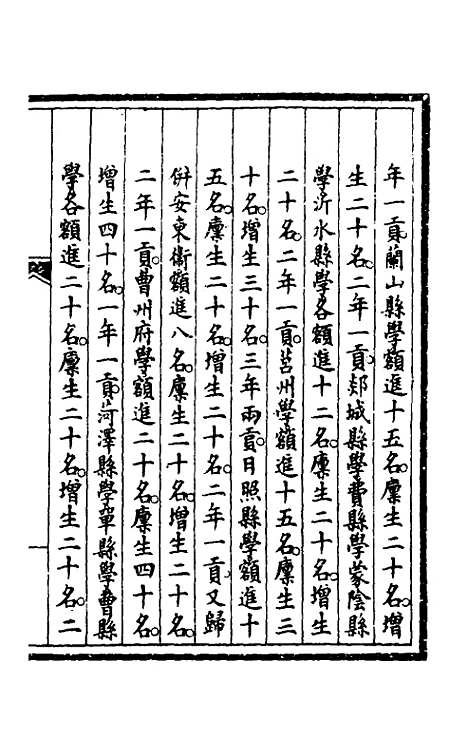 年一貢蘭山縣學額進十五名廩生二十名增
生二十名二年一貢郯城縣學費縣學蒙陰縣
學沂水縣學各額進十二名廩生二十名增生
二十名二年一貢莒州學額進十五名廩生三
十名增生三十名三年兩貢日照縣學額進十
五名廩生二十名增生二十名二年一貢又歸
併安東衞額進八名廩生二十名增生二十名
二年一貢曹州府學額進二十名廩生四十名
增生四十名一年一貢菏澤縣學單縣學曹縣
學各額進二十名廩生二十名增生二十名二